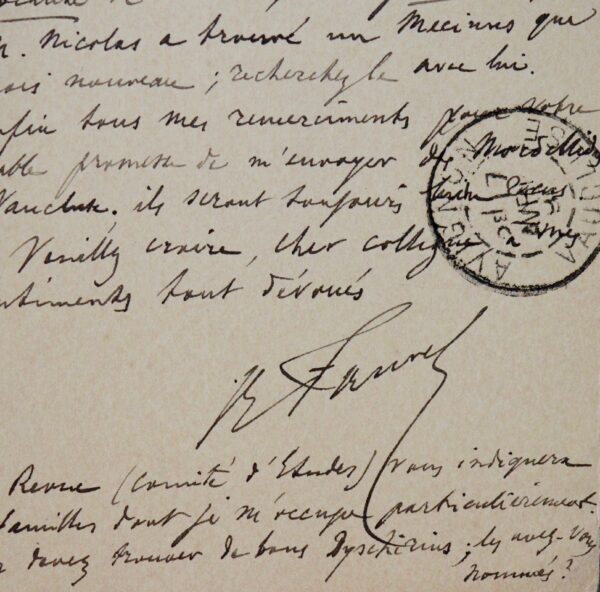 . Nicolas a trouvé un Mecinus que
nouveau ; recherchez le avec lui.
tous mes remerciments pour votre
promesse de m'envoyer des Mordellides
Vaucluse ; ils seront toujours bien
Veuillez croire, cher collègue
sentiments tout dévoués
Fauvel
Revue (Comité d'Etudes) vous indiquera
familles dont je m'occupe particulièrement.
devez trouver de bons Dyschirius ; les avez-vous
nommés ?
AVIGNON
VAUCLUSE